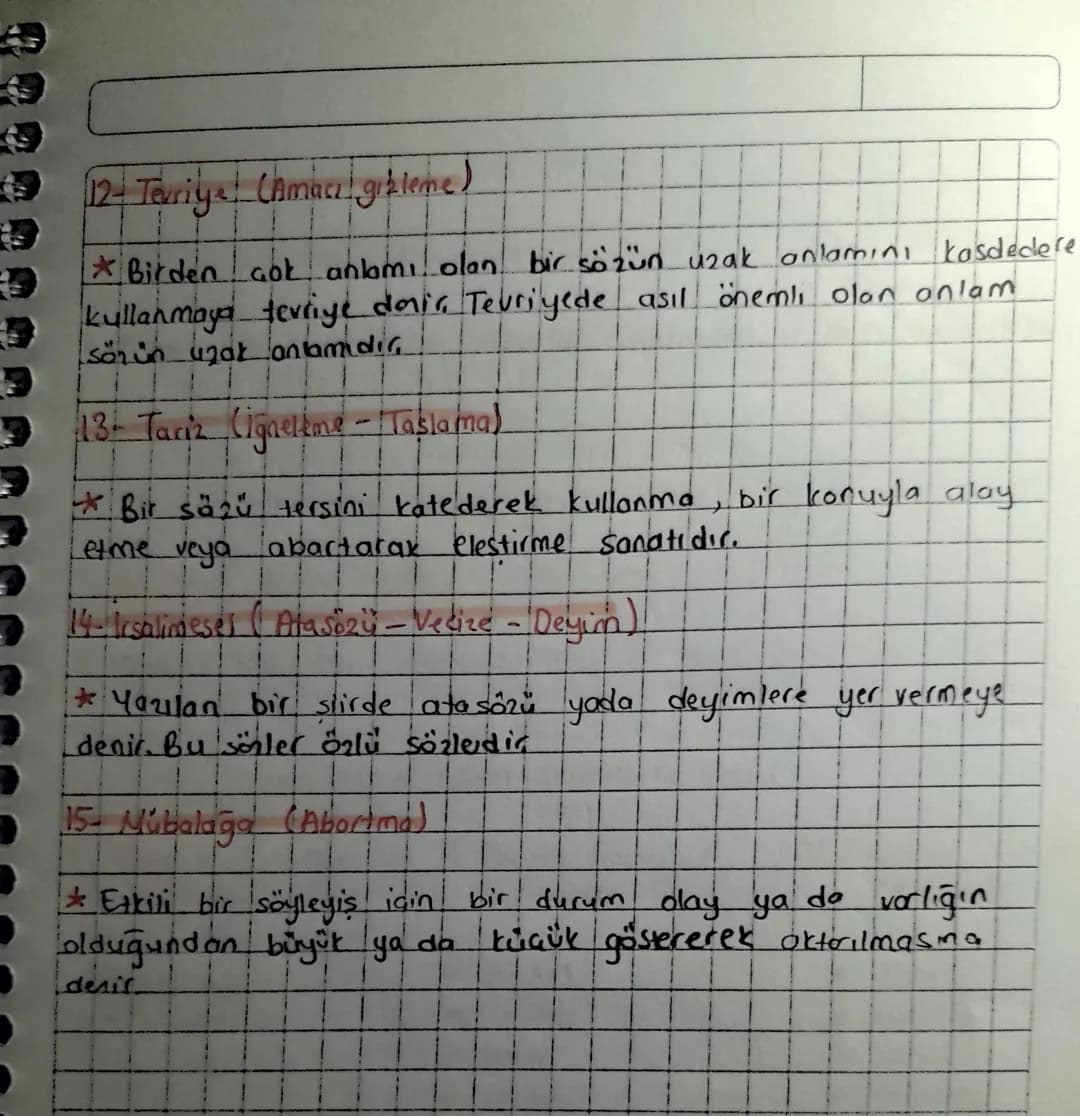 12- Tevriye (Amacı gizleme)
* Birden çok anlamı olan bir sözün uzak anlamını kasdedere
kullanmaya tevriye denir. Tevriyede asıl önemli olan anlam
sözün uzak anlamıdır.
13- Tariz (iğneleme - Taşlama)
* Bir sözü tersini katederek kullanma, bir konuyla alay
etme veya abartarak eleştirme sanatıdır.
14- İrsalimesel (Atasözü - Vecize - Deyim)
* Yazılan bir şiirde atasözü yada deyimlere yer vermeye
denir. Bu sözler özlü sözlerdir
15- Mübalağa (Abartma)
* Etkili bir söyleyiş için bir durum olay ya da varlığın
olduğundan büyük ya da küçük göstererek aktarılmasına
denir